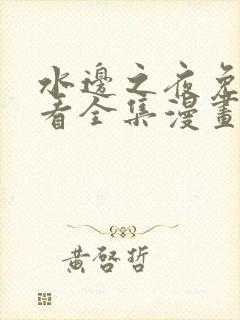 水邊之夜免
看全集漫畫
黃啓哲